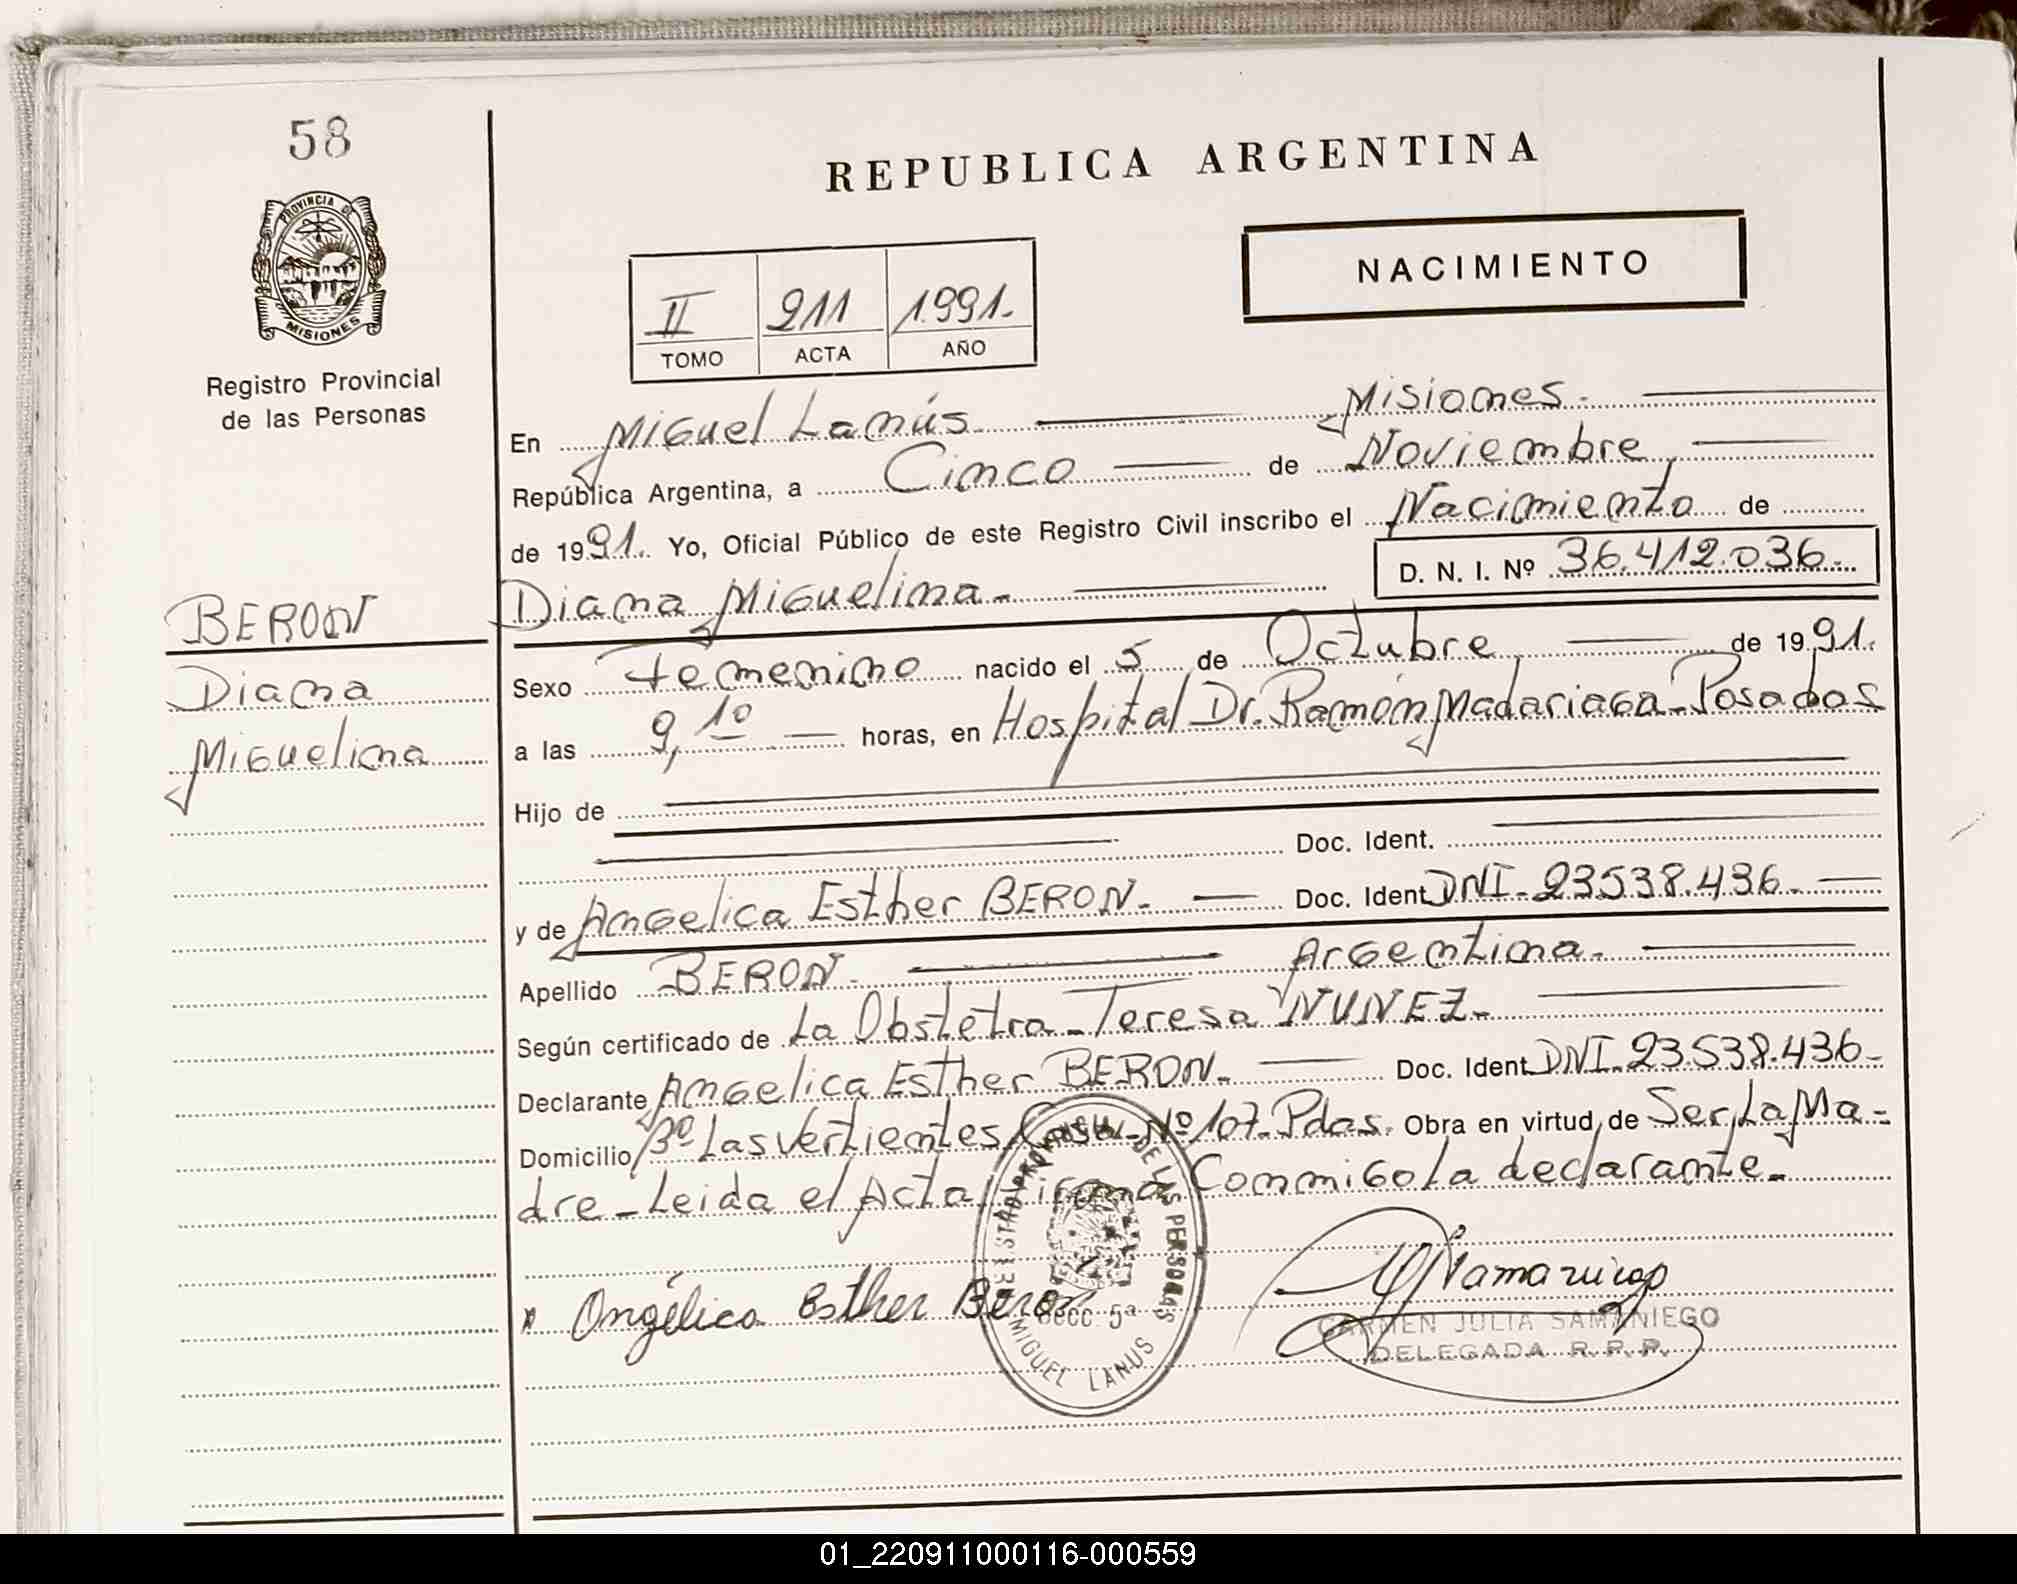 58
PROVINCIA DE
MISIONES
Registro Provincial
de las Personas
REPUBLICA ARGENTINA
NACIMIENTO
II 211 1.991.
TOMO ACTA AÑO
En Miguel Lanús Misiones.
República Argentina, a Cinco de Noviembre
de 1991. Yo, Oficial Público de este Registro Civil inscribo el Nacimiento de
Diana Miguelina. D. N. I. Nº 36.412.036.
BERON
Diana
Miguelina
Sexo Femenino nacido el 5 de Octubre de 1991.
a las 9,10 horas, en Hospital Dr. Ramón Madariaga-Posadas
Hijo de
Doc. Ident.
y de Angelica Esther BERON. Doc. Ident DNI-23538.436.
Apellido BERON. Argentina.
Según certificado de La Obstetra-Teresa NUNEZ.
Declarante Angelica Esther BERON. Doc. Ident DNI.23.538.436-
Domicilio Bº Las Vertientes, Casa-Nº 107-Pdas. Obra en virtud de Ser La Ma=
dre-Leida el Acta Firma Conmigo la declarante-
Angélica Esther Beron
DE LAS PERSONAS
Secc 5ª
MIGUEL LANUS
CARMEN JULIA SAMANIEGO
DELEGADA R. P. P.
01_220911000116-000559